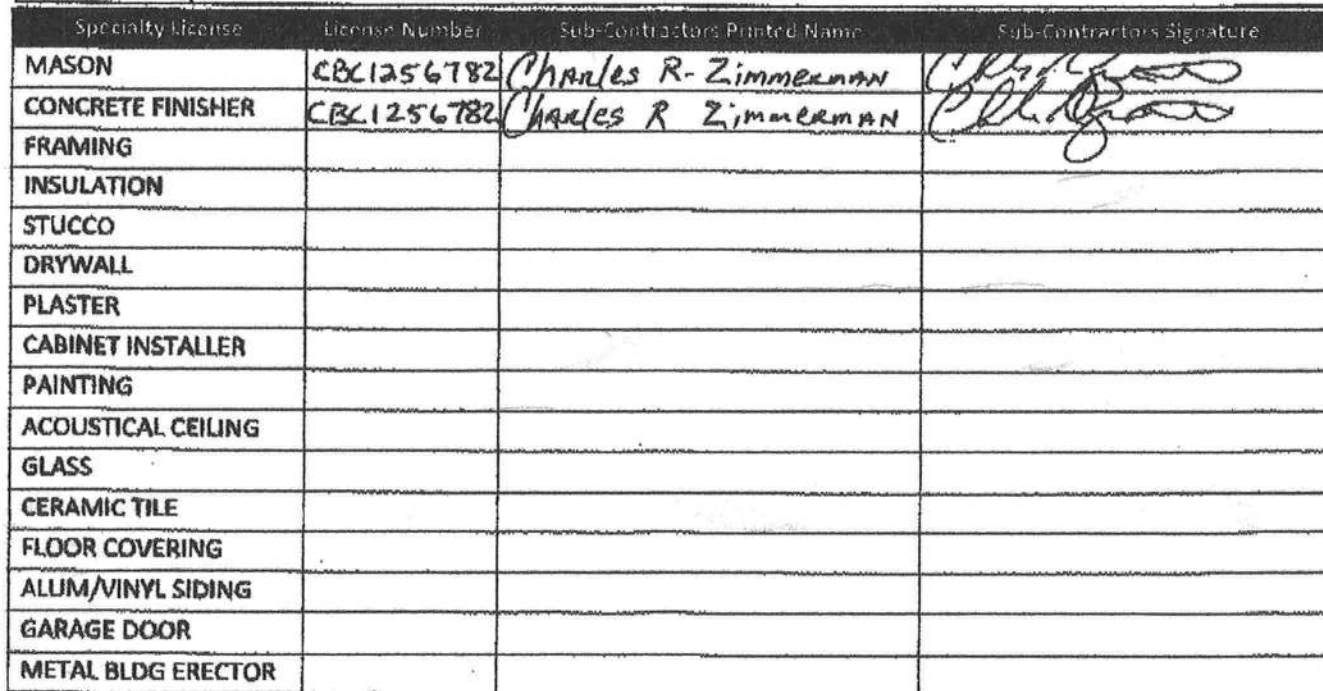 Specialty License License Number Sub-Contractors Printed Name Sub-Contractors Signature
MASON CBC1256782 Charles R. Zimmerman
CONCRETE FINISHER CBC1256782 Charles R Zimmerman
FRAMING
INSULATION
STUCCO
DRYWALL
PLASTER
CABINET INSTALLER
PAINTING
ACOUSTICAL CEILING
GLASS
CERAMIC TILE
FLOOR COVERING
ALUM/VINYL SIDING
GARAGE DOOR
METAL BLDG ERECTOR